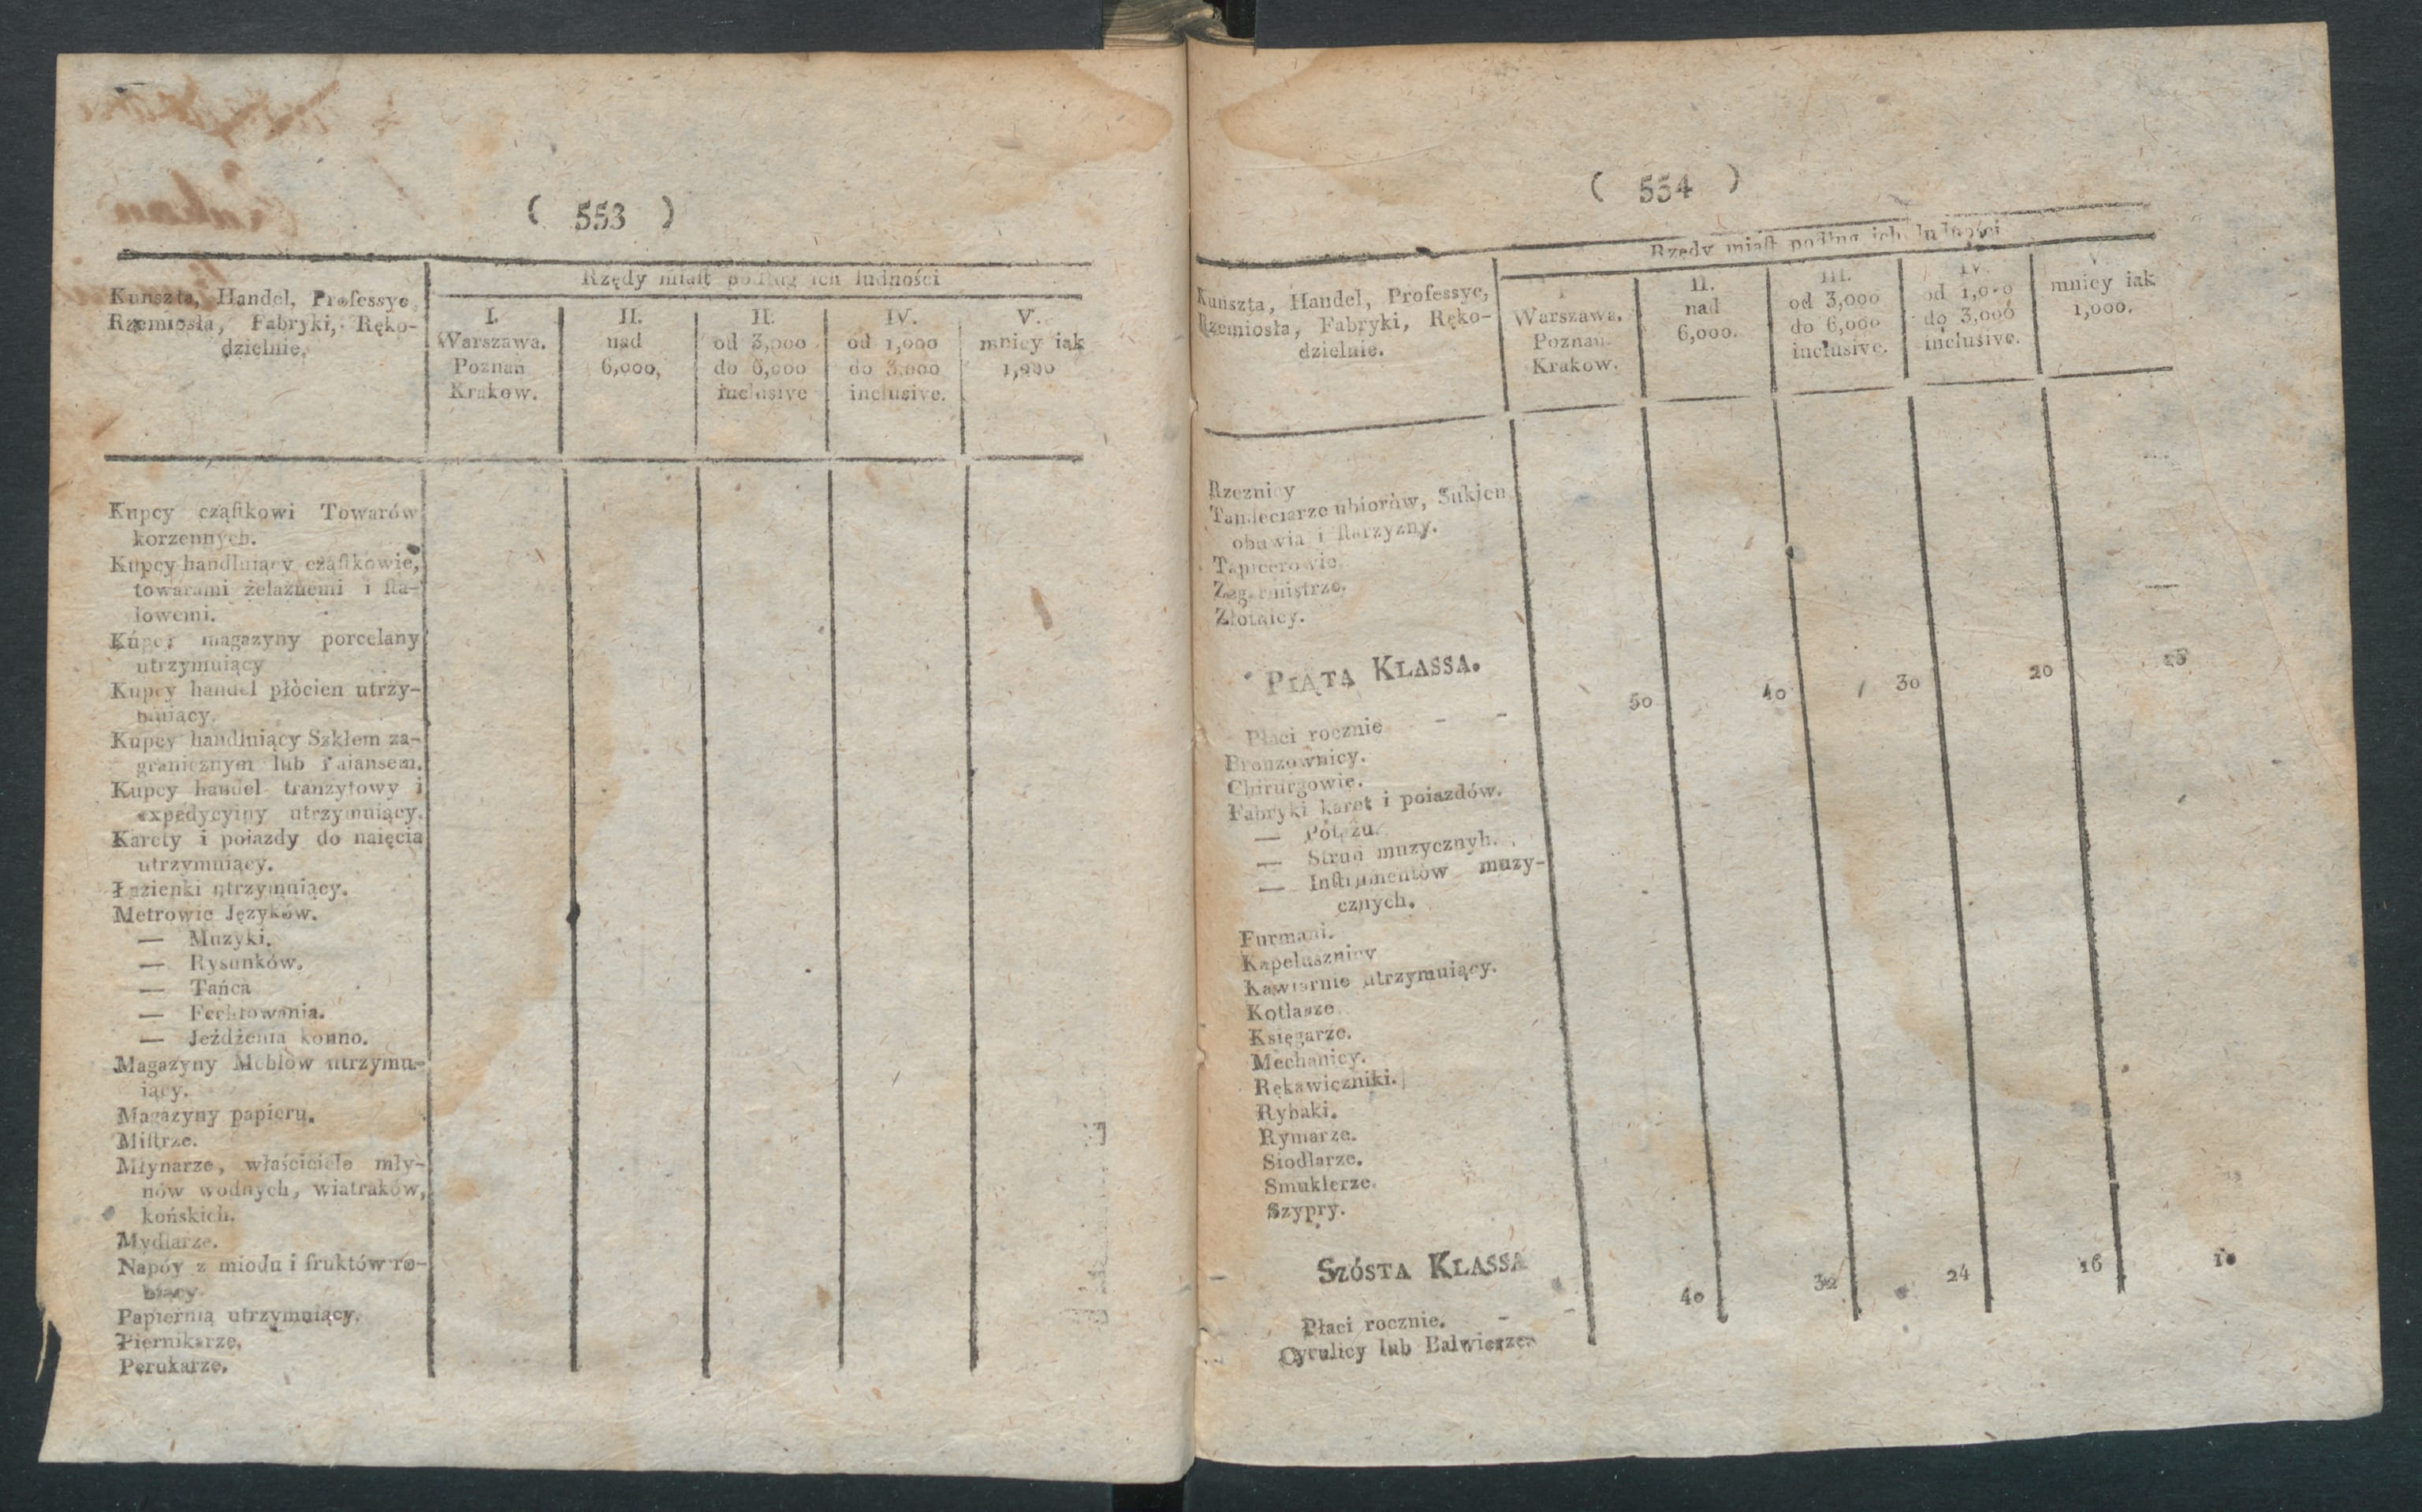 ( 553 )
Rzędy miaſt podług ich ludności
Kunszta, Handel, Professye,
Rzemiosła, Fabryki, Ręko-
dzielnie.
I.
Warszawa.
Poznań
Krakow.
II.
nad
6,000,
II.
od 3,000
do 6,000
inclusive
IV.
od 1,000
do 3,000
inclusive.
V.
mniey iak
1,000
Kupcy cząſtkowi Towarów
korzennych.
Kupcy handluiący cząſtkowie,
towarami żelaznemi i ſta-
lowemi.
Kupcy magazyny porcelany
utrzymuiący
Kupcy handel płócien utrzy-
muiący.
Kupcy handluiący Szkłem za-
granicznym lub Faiansem.
Kupcy handel tranzytowy i
expedycyiny utrzymuiący.
Karety i poiazdy do naięcia
utrzymuiący.
Łazienki utrzymuiący.
Metrowie Języków.
— Muzyki.
— Rysunków.
— Tańca
— Fechtowania.
— Jeżdżenia konno.
Magazyny Meblow utrzymu-
iący.
Magazyny papieru.
Miſtrze.
Młynarze, właściciele mły-
nów wodnych, wiatraków,
końskich.
Mydlarze.
Napóy z miodu i fruktów ro-
biący
Papiernią utrzymuiący.
Piernikarze.
Perukarze.
( 554 )
Rzędy miaſt podług ich ludności
Kunszta, Handel, Professye,
Rzemiosła, Fabryki, Ręko-
dzielnie.
I
Warszawa.
Poznań
Krakow.
II.
nad
6,000.
III.
od 3,000
do 6,000
inclusive.
IV.
od 1,000
do 3,000
inclusive.
V
mniey iak
1,000.
Rzeznicy
Tandeciarze ubiorów, Sukien
obuwia i ſtarzyzny.
Tapicerowie.
Zegarmistrze.
Złotnicy.
PIĄTA KLASSA.
Płaci rocznie - - 50 40 30 20 15
Bronzownicy.
Chirurgowie.
Fabryki karet i poiazdów.
— Potażu.
— Strun muzycznyh.
— Inſtrumentów muzy-
cznych.
Furmani.
Kapelusznicy
Kawiarnie utrzymuiący.
Kotlarze
Księgarze.
Mechanicy.
Rękawiczniki.
Rybaki.
Rymarze.
Siodlarze.
Smuklerze.
Szypry.
SZÓSTA KLASSA
Płaci rocznie. - - 40 32 24 16 10
Cyrulicy lub Balwierze.